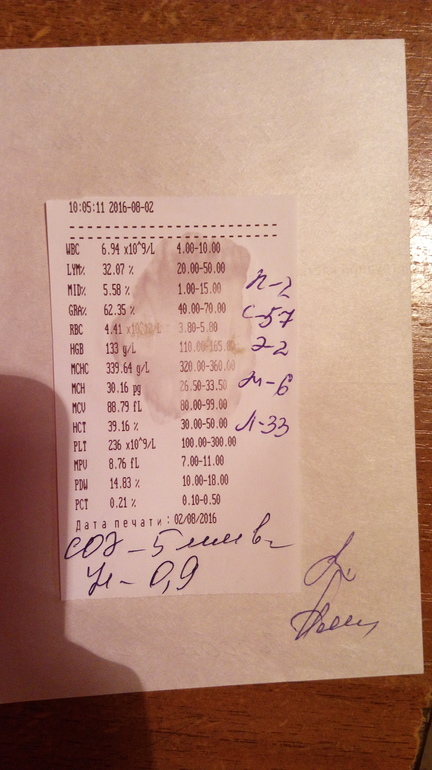 10:05:11 2016-08-02
WBC 6.94 x10^9/L 4.00-10.00
LYM% 32.07 % 20.00-50.00
MID% 5.58 % 1.00-15.00
п-2
GRA% 62.35 % 40.00-70.00
с-57
RBC 4.41 x10^12/L 3.80-5.80
HGB 133 g/L 110.00-165.00
э-2
MCHC 339.64 g/L 320.00-360.00
MCH 30.16 pg 26.50-33.50
м-6
MCV 88.79 fL 80.00-99.00
HCT 39.16 % 30.00-50.00
л-33
PLT 236 x10^9/L 100.00-300.00
MPV 8.76 fL 7.00-11.00
PDW 14.83 % 10.00-18.00
PCT 0.21 % 0.10-0.50
Дата печати: 02/08/2016
СОЭ - 5 мм в
- 0,9